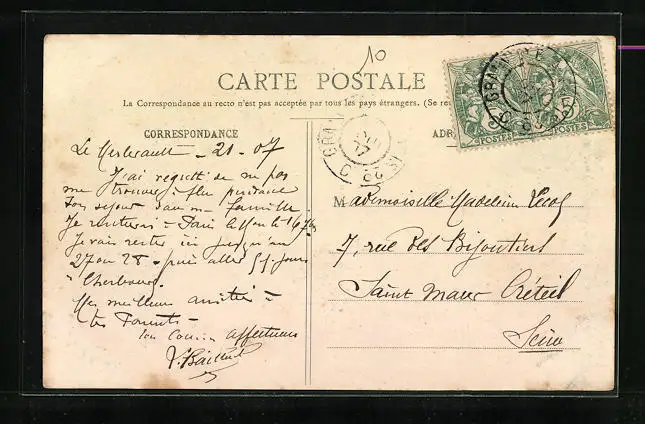 10
CARTE POSTALE
La Correspondance au recto n'est pas acceptée par tous les pays étrangers. (Se
CORRESPONDANCE
Le Merlerault - 21 - 07
J'ai regretté de ne pas
me trouver à
ton séjour dans ma famille
Je Paris le
Je vais rester ici jusqu'au
27 ou 28 - puis aller 5 j. jours
à Cherbourg.
Mes meilleures amitiés à
tes Parents -
ton Cousin affectueux
ADR
POSTES
POSTES
5
GRA
Mademoiselle Madeleine
7, rue des Bijoutiers
Saint Maur Créteil
Seine